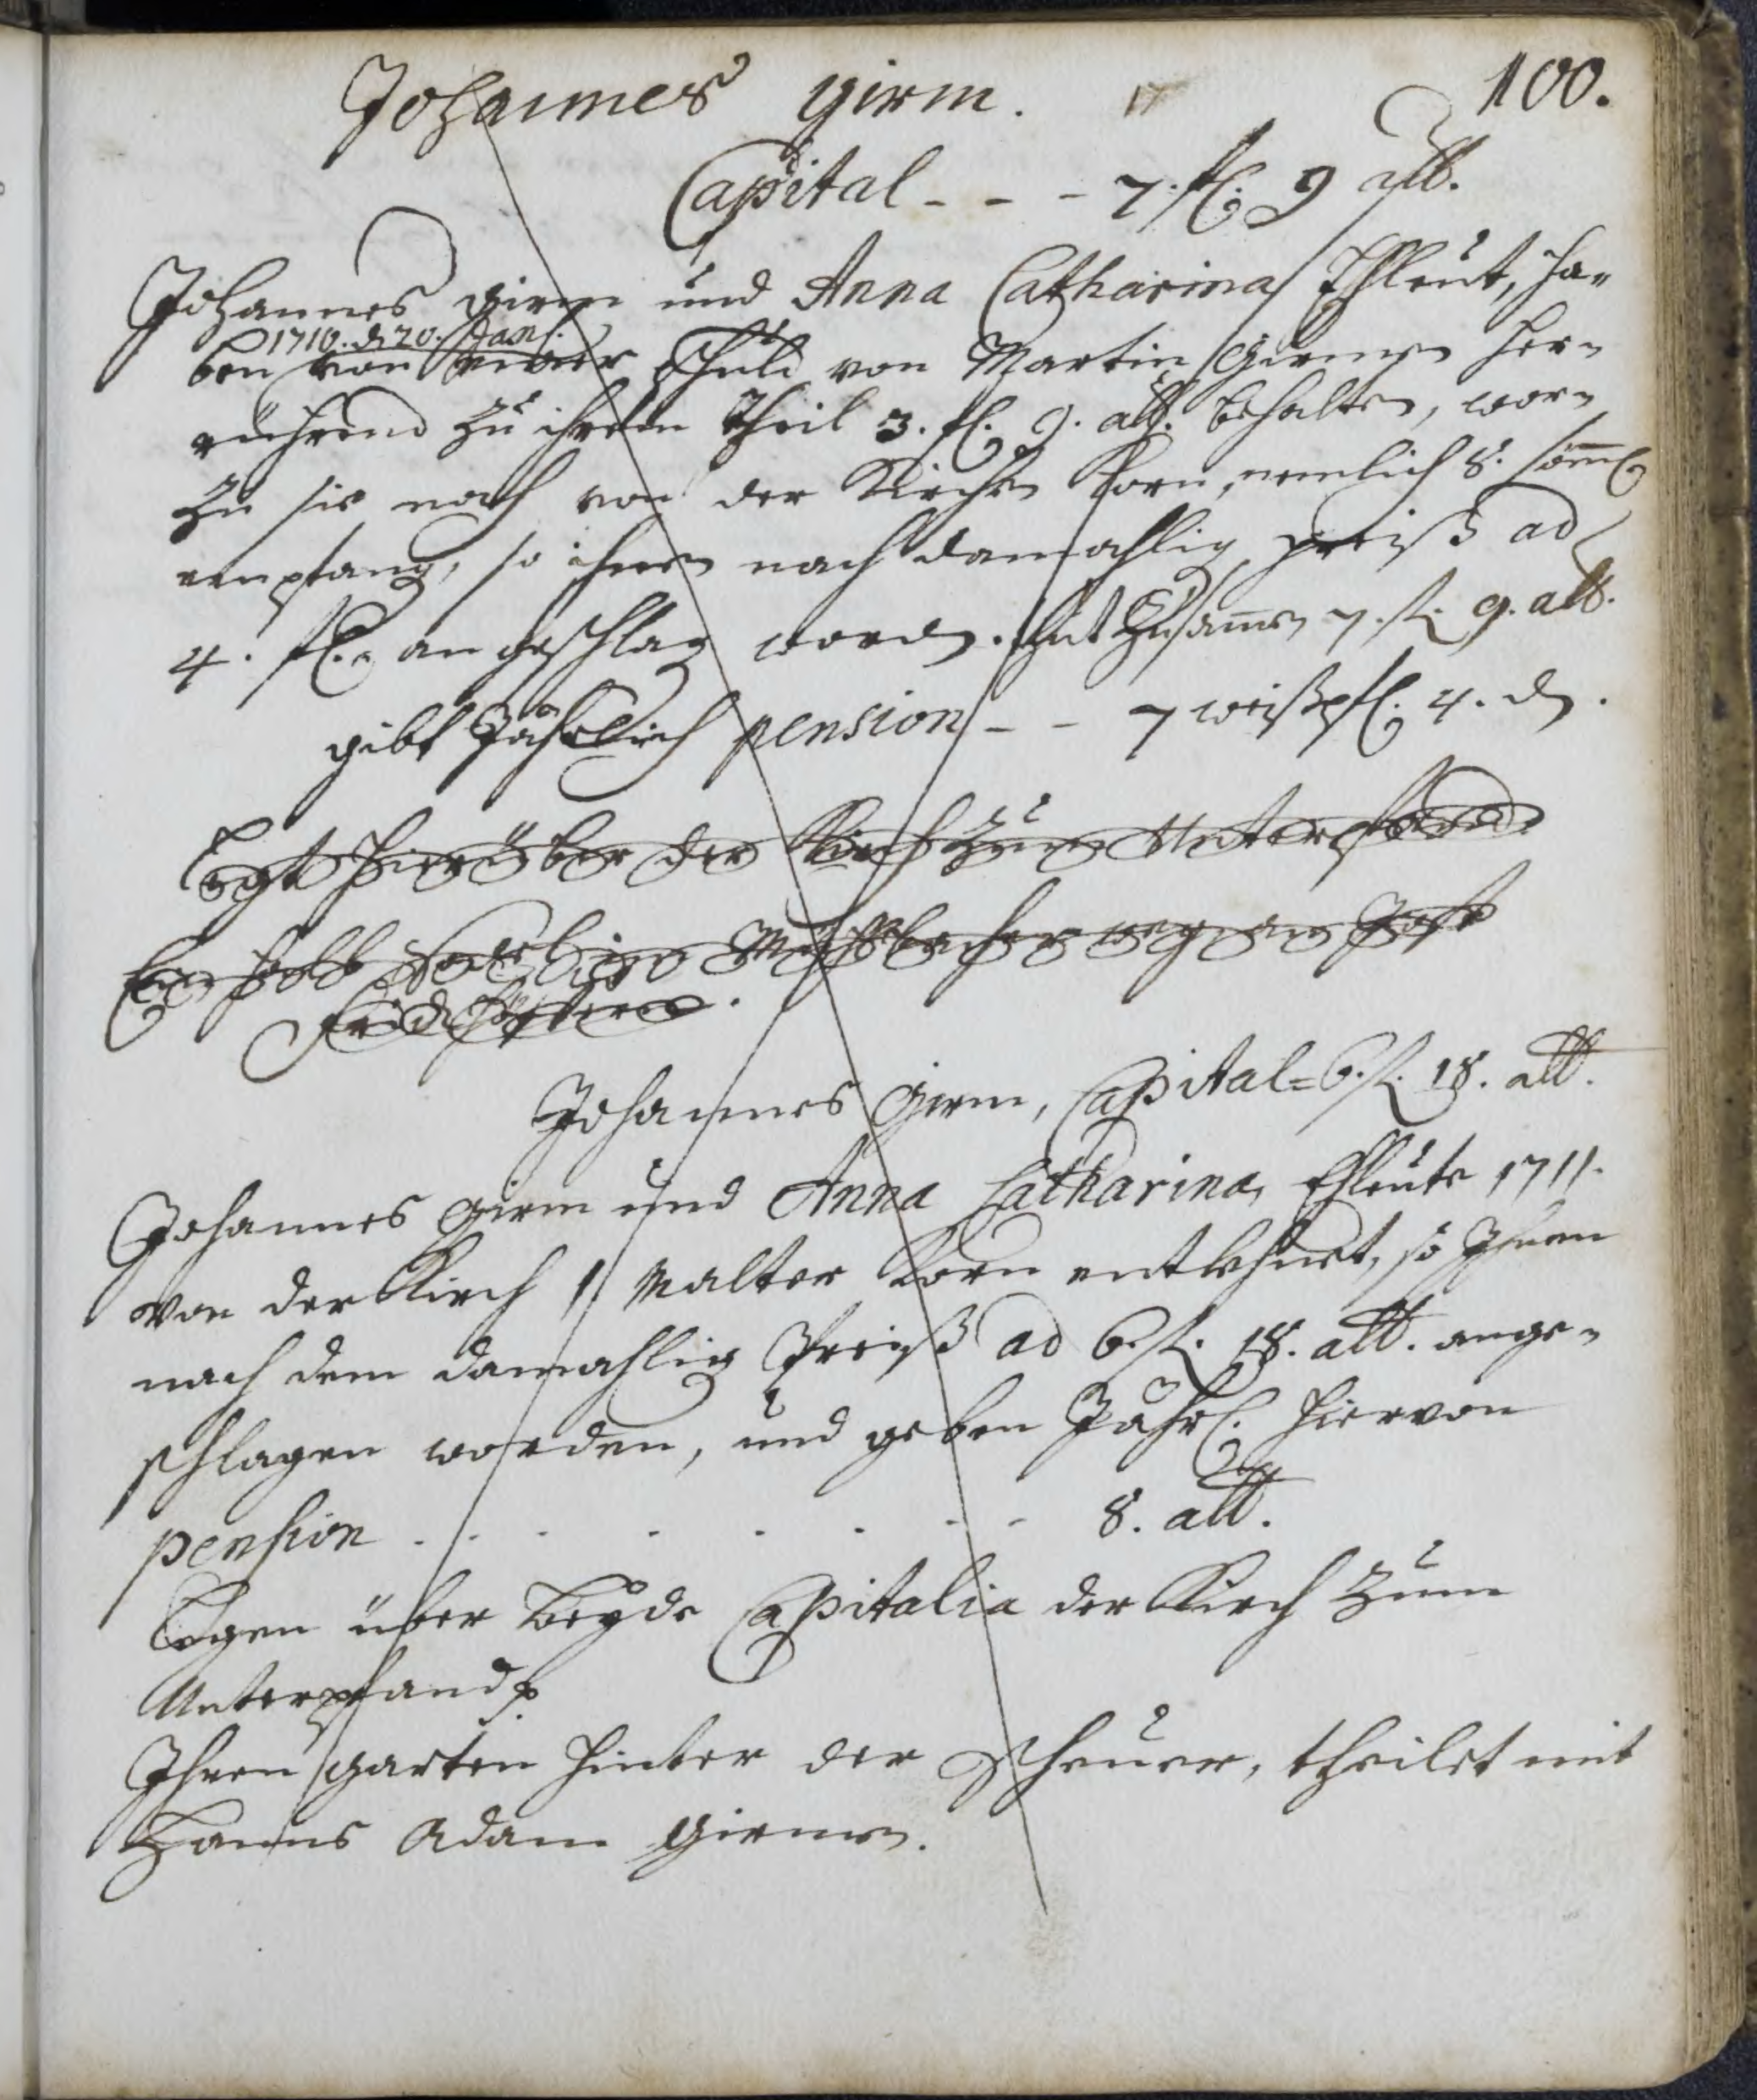 Johannes Girm. 100.
Capital - - - 7. fl. 9 alb.
Johannes Girm und Anna Catharina Ehleut, ha-
1710. d. 20. Jan.
ben von einer Schuld von Martin Girmen her-
rührend zu ihrem Theil 3. fl. 9. alb. behalten, wor-
zu sie noch von der Kirchen Korn, nemlich 8.
empfang, so ihnen nach damahlig preiß ad
4. fl. angeschlag word. thut zusamen 7. fl. 9. alb.
gibt Jährlich pension - - 7 weißpf. 4. d.
Legt hierüber der Kirch zum Unterpfand
Ein halb weg an Jost
Johannes Girm, Capital = 6. fl. 18. alb.
Johannes Girm und Anna Catharina, Ehleute 1711.
von der Kirch 1 Malter Korn entlehnet, so Ihnen
nach dem damahlig Preiß ad 6. fl. 18. alb. ange-
schlagen worden, und geben Jährl. hiervon
pension . . . . . . - - 8. alb.
Legen über beyde Capitalia der Kirch zum
Unterpfand
Ihren garten hinter der Scheuer, theilet mit
Hanns Adam Girmen.